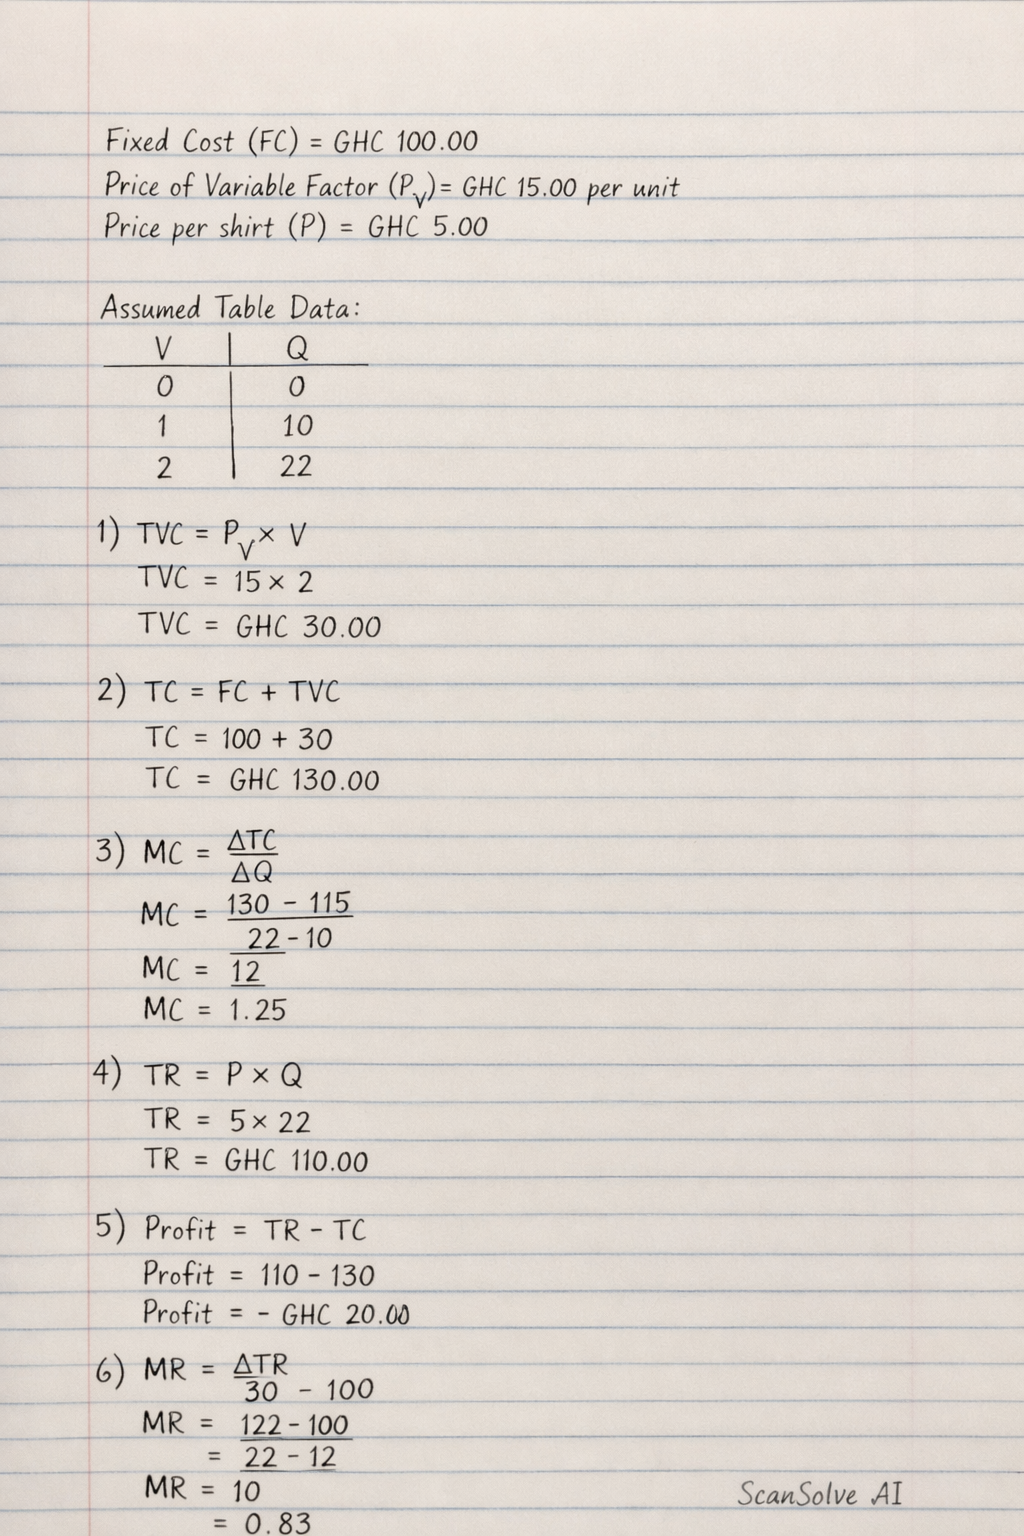 Fixed Cost (FC) = GHC 100.00
Price of Variable Factor (P_V) = GHC 15.00 per unit
Price per shirt (P) = GHC 5.00
Assumed Table Data:
V | Q
0 | 0
1 | 10
2 | 22
1) TVC = P_V × V
TVC = 15 × 2
TVC = GHC 30.00
2) TC = FC + TVC
TC = 100 + 30
TC = GHC 130.00
3) MC = ΔTC
ΔQ
MC = 130 - 115
22 - 10
MC = 12
MC = 1.25
4) TR = P × Q
TR = 5 × 22
TR = GHC 110.00
5) Profit = TR - TC
Profit = 110 - 130
Profit = - GHC 20.00
6) MR = ΔTR
30 - 100
MR = 122 - 100
= 22 - 12
MR = 10
= 0.83
ScanSolve AI